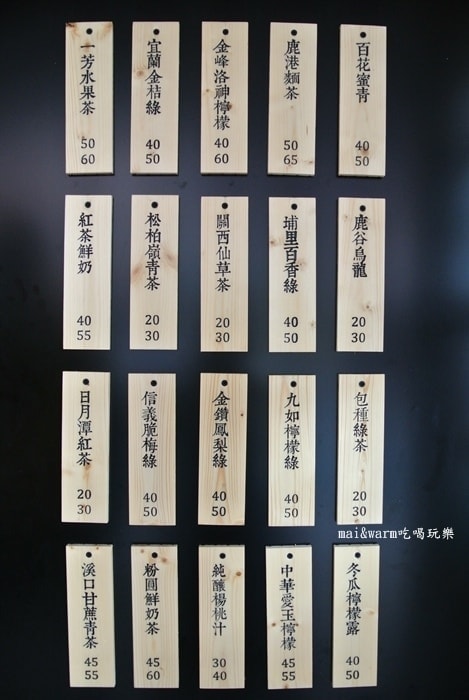 一芳水果茶
50
60
宜蘭金桔綠
40
50
金峰洛神檸檬
40
60
鹿港麵茶
50
65
百花蜜青
40
50
紅茶鮮奶
40
55
松柏嶺青茶
20
30
關西仙草茶
20
30
埔里百香綠
40
50
鹿谷烏龍
20
30
日月潭紅茶
20
30
信義脆梅綠
40
50
金鑽鳳梨綠
40
50
九如檸檬綠
40
50
包種綠茶
20
30
mai&warm吃喝玩樂
溪口甘蔗青茶
45
55
粉圓鮮奶茶
45
60
純釀楊桃汁
30
40
中華愛玉檸檬
45
55
冬瓜檸檬露
40
50